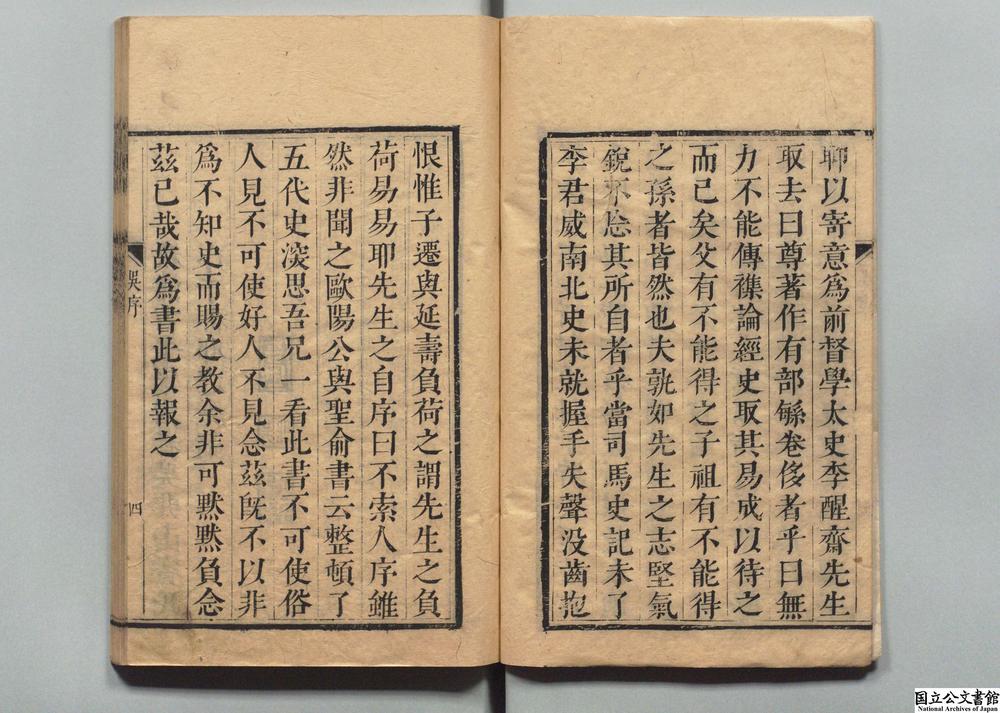 聊以寄意爲前督學太史李醒齋先生
取去曰尊著作有部緐卷侈者乎曰無
力不能傳襍論經史取其易成以待之
而已矣父有不能得之子祖有不能得
之孫者皆然也夫孰如先生之志堅氣
銳不怠其所自者乎當司馬史記未了
李君威南北史未就握手失聲没齒抱
恨惟子遷與延壽負荷之謂先生之負
荷易易耶先生之自序曰不索人序雖
然非聞之歐陽公與聖俞書云整頓了
五代史深思吾兄一看此書不可使俗
人見不可使好人不見念茲旣不以非
爲不知史而賜之教余非可黙黙負念
茲已哉故爲書此以報之
吳序
四
国立公文書館
National Archives of Japan